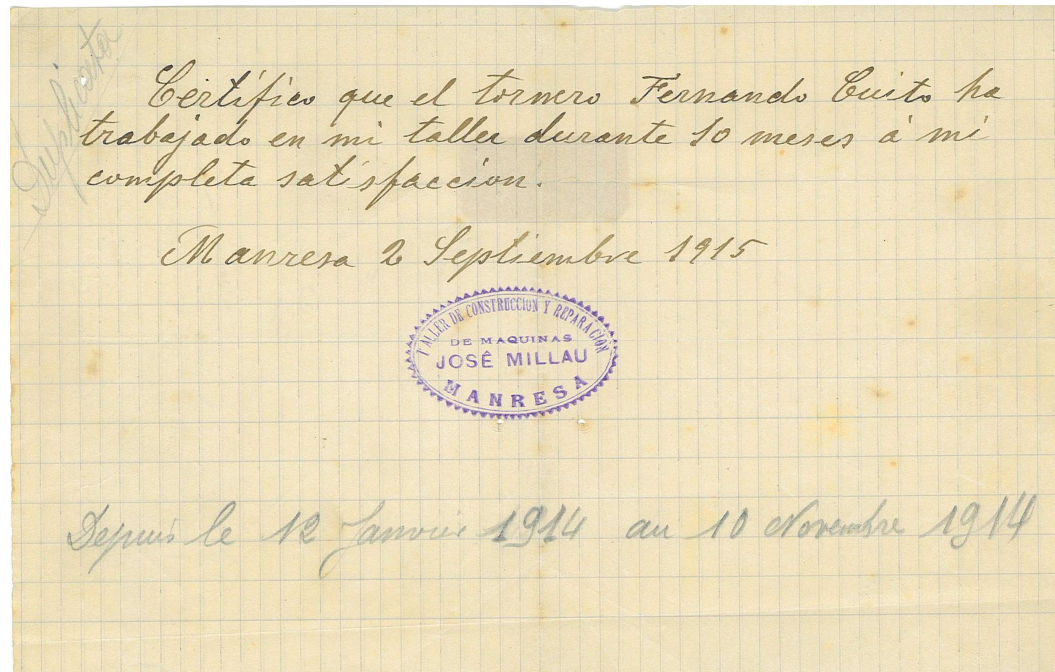 Duplicata
Certifico que el tornero Fernando Cuito ha
trabajado en mi taller durante 10 meses á mi
completa satisfaccion.
Manresa 2 Septiembre 1915
TALLER DE CONSTRUCCION Y REPARACIÓN
DE MAQUINAS
JOSÊ MILLAU
MANRESA
Depuis le 12 Janvier 1914 au 10 Novembre 1914